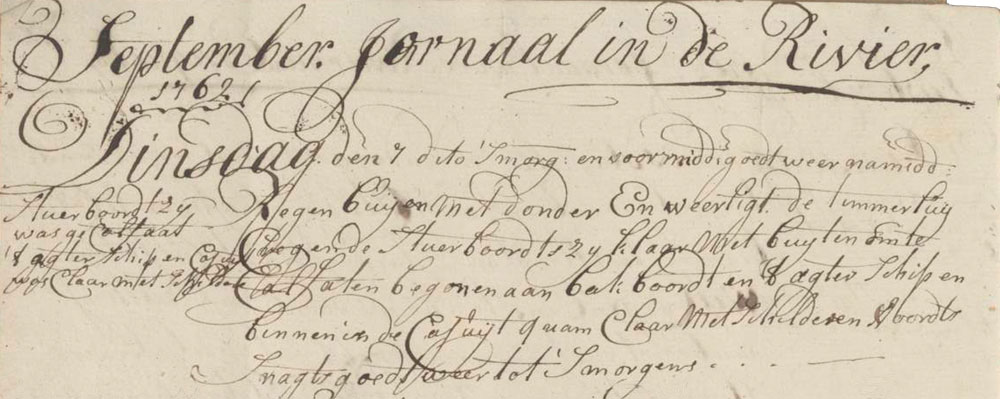 September. Jornaal in de Rivier,
1762
Dinsdag. den 7 dito 'Smorg: en voormidd: goedt weer namidd:
Regen buijen met donder En weerligt. de timmerluij
kregen de Stuerboordts zy klaar Met buyten omte
Calfaten begonen aan bakboordt en 't agter Schip en
binnen in de Cajuyt quam Claar Met Schilderen & voordts
Snagts goedt weer tot 'Smorgens . . . .
Stuerboordt zy
was gecalfaat
't agter Schip en Cajuyt
was Claar met Schilderen